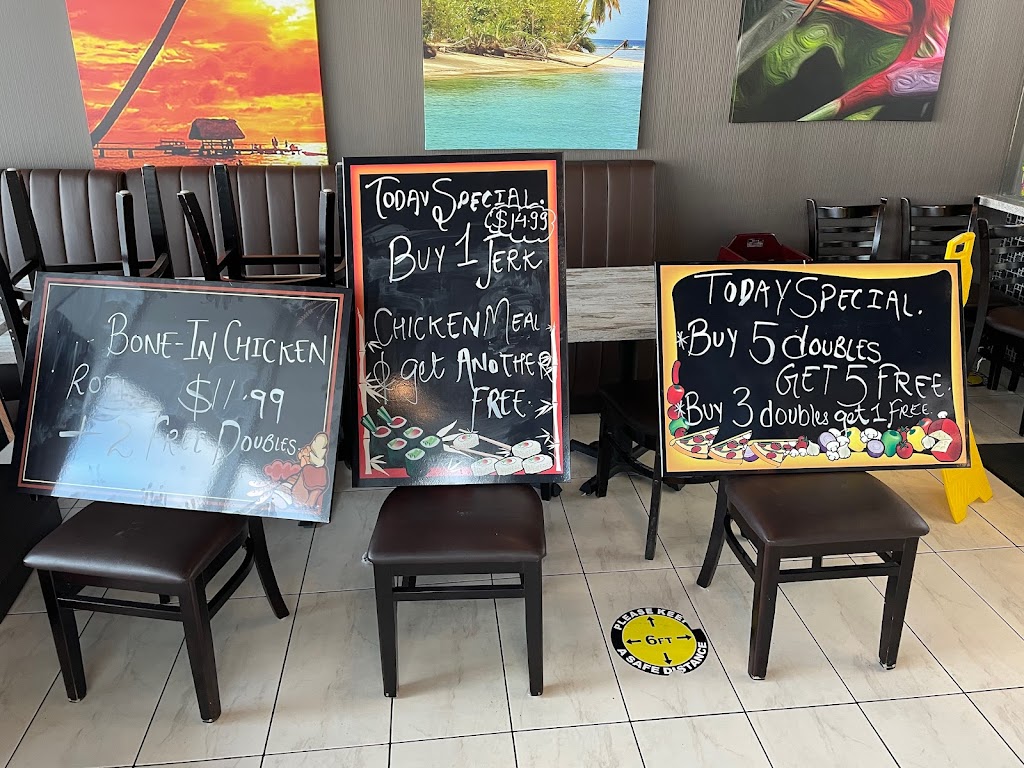 BONE-IN CHICKEN
$11.99
+ 2 FREE DOUBLES
TODAY SPECIAL.
$14.99
BUY 1 JERK
CHICKEN MEAL
& get ANOTHER
FREE.
TODAY SPECIAL.
*BUY 5 doUBLES
GET 5 FREE.
*BUY 3 doubles get 1 FREE
PLEASE KEEP
6FT
A SAFE DISTANCE